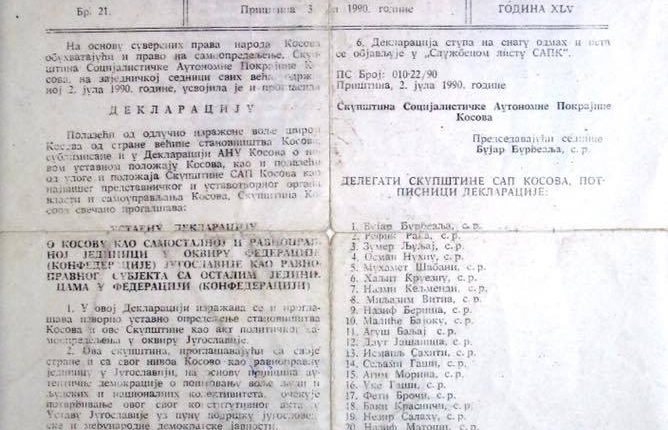 Бр. 21.
Приштина 3 1990. године
ГОДИНА XLV
На основу суверених права народа Косова
обухватајући и право на самоопредељење, Скуп-
штина Социјалистичке Аутономне Покрајине Ко-
сова, на заједничкој седници свих већа, одрж
ној 2. јула 1990. године, усвојила је и
ДЕКЛАРАЦИЈУ
Полазећи од одлучно изражене воље широм
Косова од стране већине становништва Косова,
сублимисане и у Декларацији АНУ Косова о
вом уставном положају Косова, као и полазећи
од улоге и положаја Скупштине САП Косова као
највишег представничког и уставотворног органа
власти и самоуправљања Косова, Скупштина Ко-
сова свечано проглашава:
УСТАВНУ ДЕКЛАРАЦИЈУ
О КОСОВУ КАО САМОСТАЛНОЈ И РАВНОПРАВ-
НОЈ ЈЕДИНИЦИ У ОКВИРУ ФЕДЕРАЦИЈЕ
(КОНФЕДЕРАЦИЈЕ) ЈУГОСЛАВИЈЕ КАО РАВНО-
ПРАВНОГ СУБЈЕКТА СА ОСТАЛИМ ЈЕДИНИ-
ЦАМА У ФЕДЕРАЦИЈИ (КОНФЕДЕРАЦИЈИ)
1. У овој Декларацији изражава се и прогла-
шава изворно уставно опредељење становништва
Косова и ове Скупштине као акт политичког са-
моопредељења у оквиру Југославије.
2. Ова скупштина, проглашавајући са своје
стране и са свог нивоа Косово као равноправну
јединицу у Југославији, на основу принципа
аутентичне демократије о поштовању воље људи и
људских и националних колективитета, очекује
потврђивање овог свог конститутивног акта у
Уставу Југославије уз пуну подршку југословен-
ске и међународне демократске јавности.
6. Декларација ступа на снагу одмах и
се објављује у „Службеном листу САПК“.
ПС Број: 010-22/90
Приштина, 2. јула 1990. године
Скупштина Социјалистичке Аутономне Покрајине
Косова
Председавајући седнице
Бујар Ђурђеала, с. р.
ДЕЛЕГАТИ СКУПШТИНЕ САП КОСОВА, ПОТ-
ПИСНИЦИ ДЕКЛАРАЦИЈЕ:
1. Бујар Ђурђеала, с. р.
2. Рефик Рака, с. р.
3. Зумер Љуљај, с. р.
4. Осман Нухиу, с. р.
5. Мухамет Шабани, с. р.
6. Халит Круезиу, с. р.
7. Назми Кељменди, с. р.
8. Миљазим Витиа, с. р.
9. Назиф Бериша, с. р.
10. Малиће Бајоку, с. р.
11. Агуш Баљај с. р.
12. Даут Јашаница, с. р.
13. Исмаиљ Сахити, с. р.
14. Сељази Гаши, с. р.
15. Агим Морина, с. р.
16. Уке Гаши, с. р.
17. Фети Брочи, с. р.
18. Баки Красничи, с. р.
19. Незир Салаху, с. р.
20. Назиф Матоши, с. р.